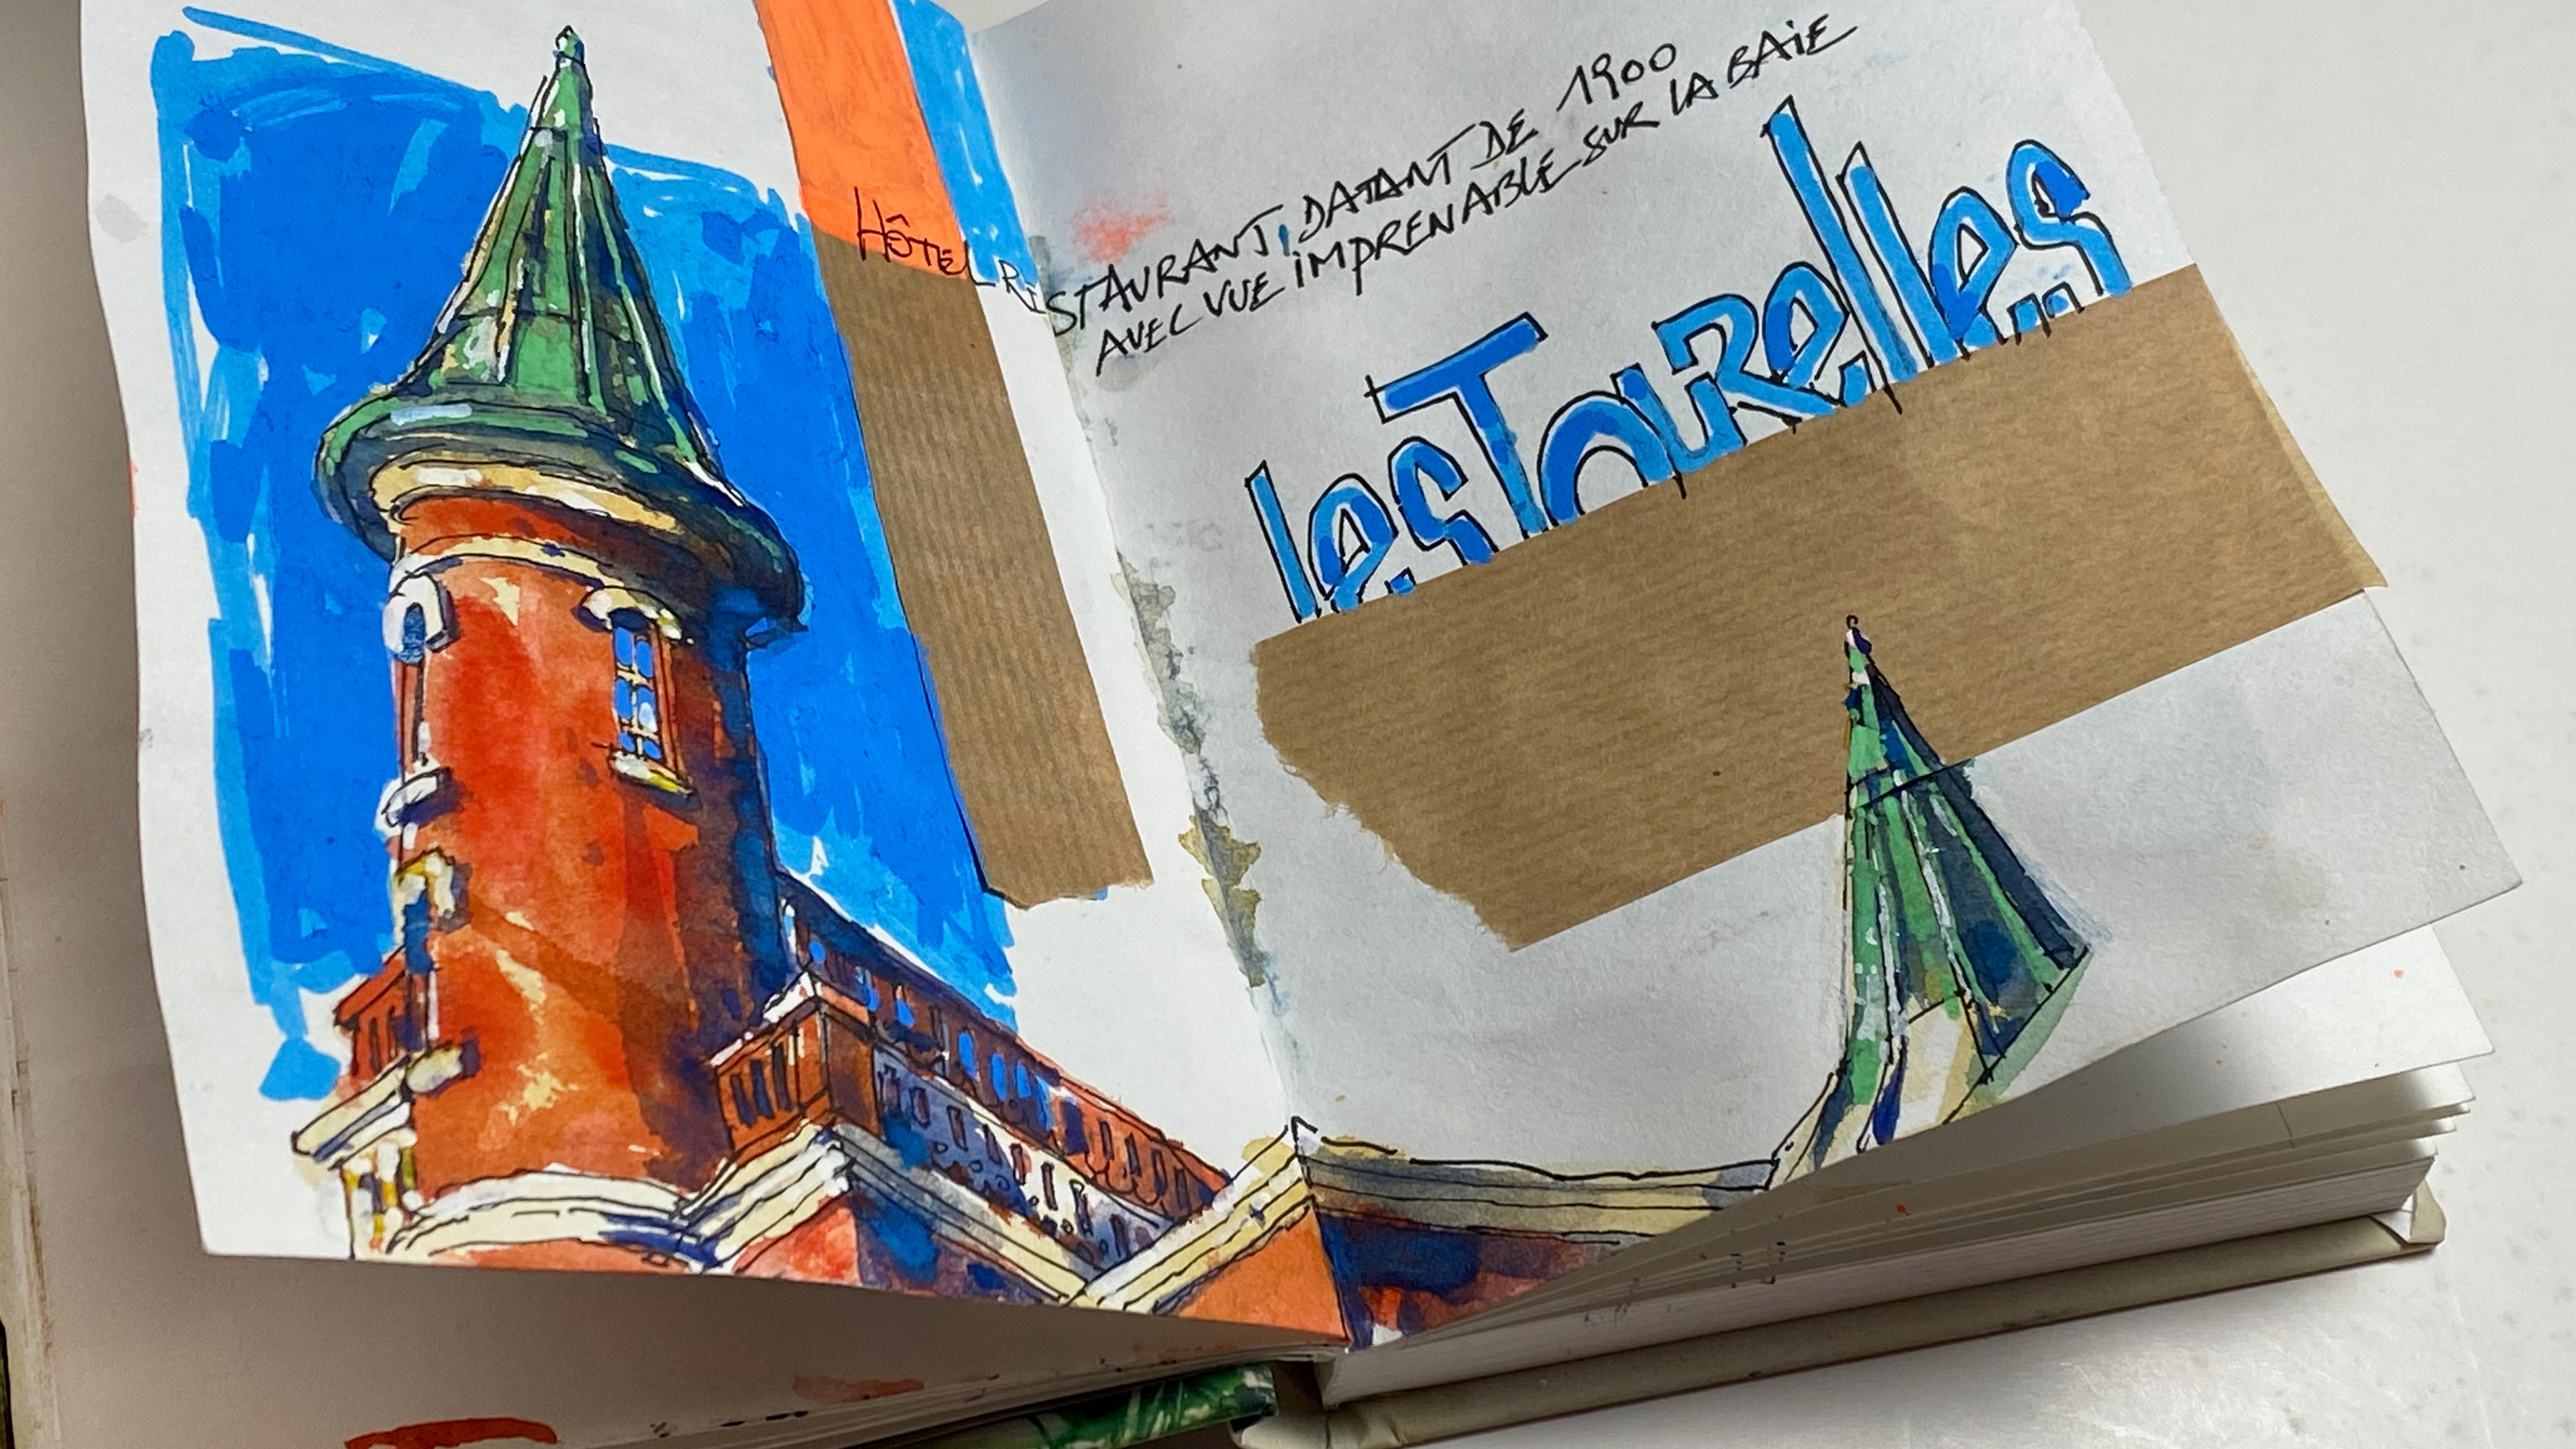 HÔTEL RESTAURANT, DATANT DE 1900
AVEC VUE IMPRENABLE SUR LA BAIE
les Tourelles